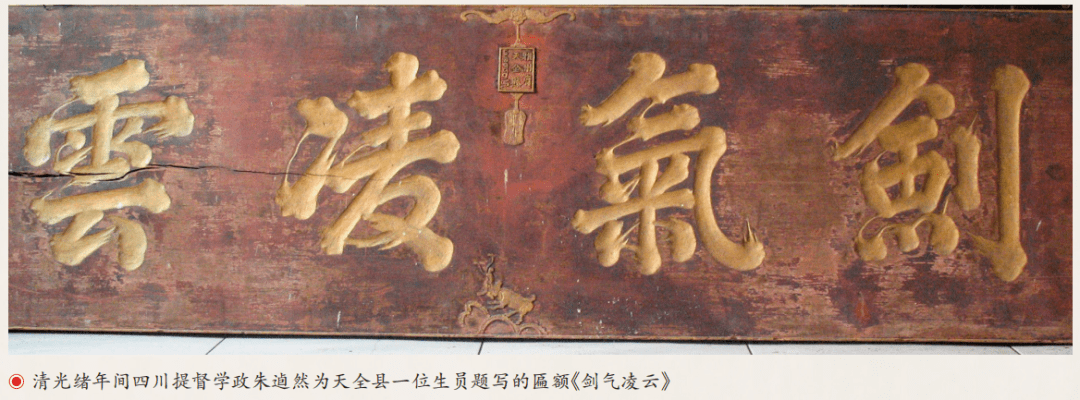 劍氣凌雲
清光绪年间四川提督学政朱逌然为天全县一位生员题写的匾额《剑气凌云》